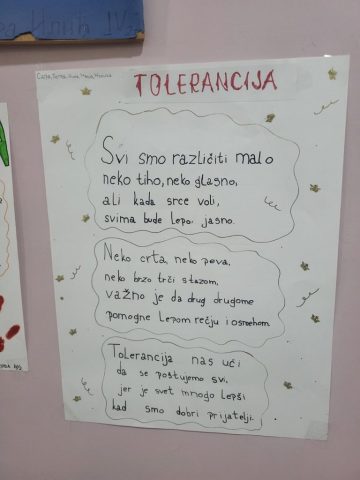 Илић IV2
TOLERANCIJA
Svi smo različiti malo
neko tiho, neko glasno,
ali kada srce voli,
svima bude lepo i jasno.
Neko crta, neko peva,
neko brzo trči stazom,
važno je da drug drugome
pomogne lepom rečju i osmehom.
Tolerancija nas uči
da se poštujemo svi,
jer je svet mnogo lepši
kad smo dobri prijatelji.